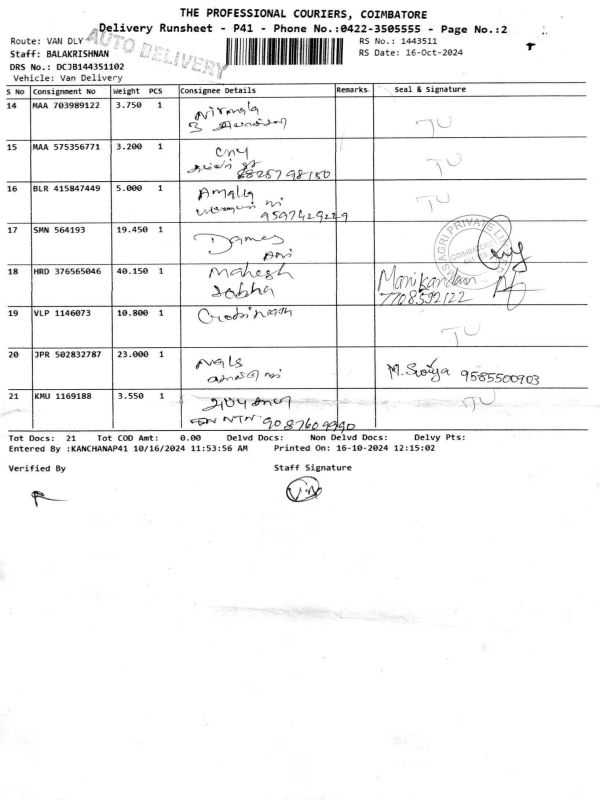 THE PROFESSIONAL COURIERS, COIMBATORE
Delivery Runsheet - P41 - Phone No.:0422-3505555 - Page No.:2
Route: VAN DLY
AUTO DELIVERY
RS No.: 1443511
Staff: BALAKRISHNAN
RS Date: 16-Oct-2024
DRS No.: DCJB144351102
Vehicle: Van Delivery
S No Consignment No Weight PCS Consignee Details Remarks Seal & Signature
14 MAA 703989122 3.750 1 Nirmala
15 MAA 575356771 3.200 1 CNY
8825798150
16 BLR 415847449 5.000 1 Amalla
9597429229
17 SMN 564193 19.450 1 James
AGRI PRIVATE
18 HRD 376565046 40.150 1 Mahesh
Sobha
Manikandan
7708592122
19 VLP 1146073 10.800 1
20 JPR 502832787 23.000 1
M. Surya 9585500903
21 KMU 1169188 3.550 1
9087609990
Tot Docs: 21 Tot COD Amt: 0.00 Delvd Docs: Non Delvd Docs: Delvy Pts:
Entered By :KANCHANAP41 10/16/2024 11:53:56 AM Printed On: 16-10-2024 12:15:02
Verified By Staff Signature